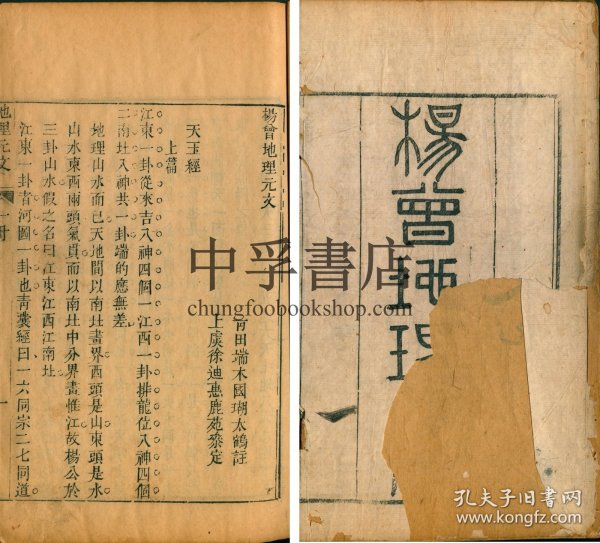 楊曾地理
一
楊曾地理元文
青田端木國瑚太鶴註
上虞徐迪惠鹿苑叅定
天玉經
上篇
江東一卦從來吉八神四個一江西一卦排龍位八神四個
二南北八神共一卦端的應無差
地理山水而已天地間以南北畫界西頭是山東頭是水
山水東西兩頭氣貫而以南北中分界畫惟江故楊公於
三卦山水假之名曰江東江西江南北
江東一卦者河圖一卦也青囊經曰一六同宗二七同道
地理元文
一
中孚書店
chungfoobookshop.com
孔夫子旧书网
www.kongfz.com